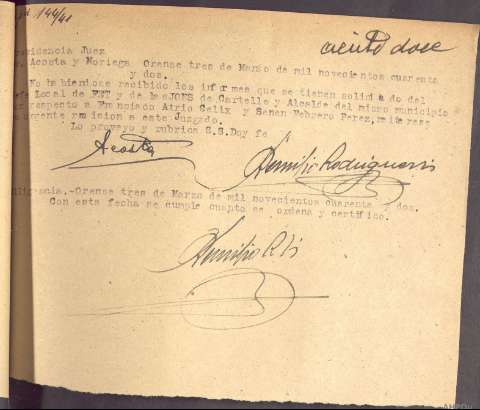 144/41
ciento doce
videncia Juez
. Acosta y Noriega Orense tres de Marzo de mil novecientos cuarenta
y dos.
No habiendose recibido los informes que se tienen solicitado del
Local de FET y de las JONS de Cartelle y Alcalde del mismo municipio
respecto a Atrio Celix y Senen Febrero Perez, reiterese
urgente remision a este Juzgado.
Lo proveyo y rubrica S.S. Doy fe
Acosta
Rodriguez
ligencia.-Orense tres de Marzo de mil novecientos cuarenta dos.
Con esta fecha se cumple cuanto se ordena y certifico.